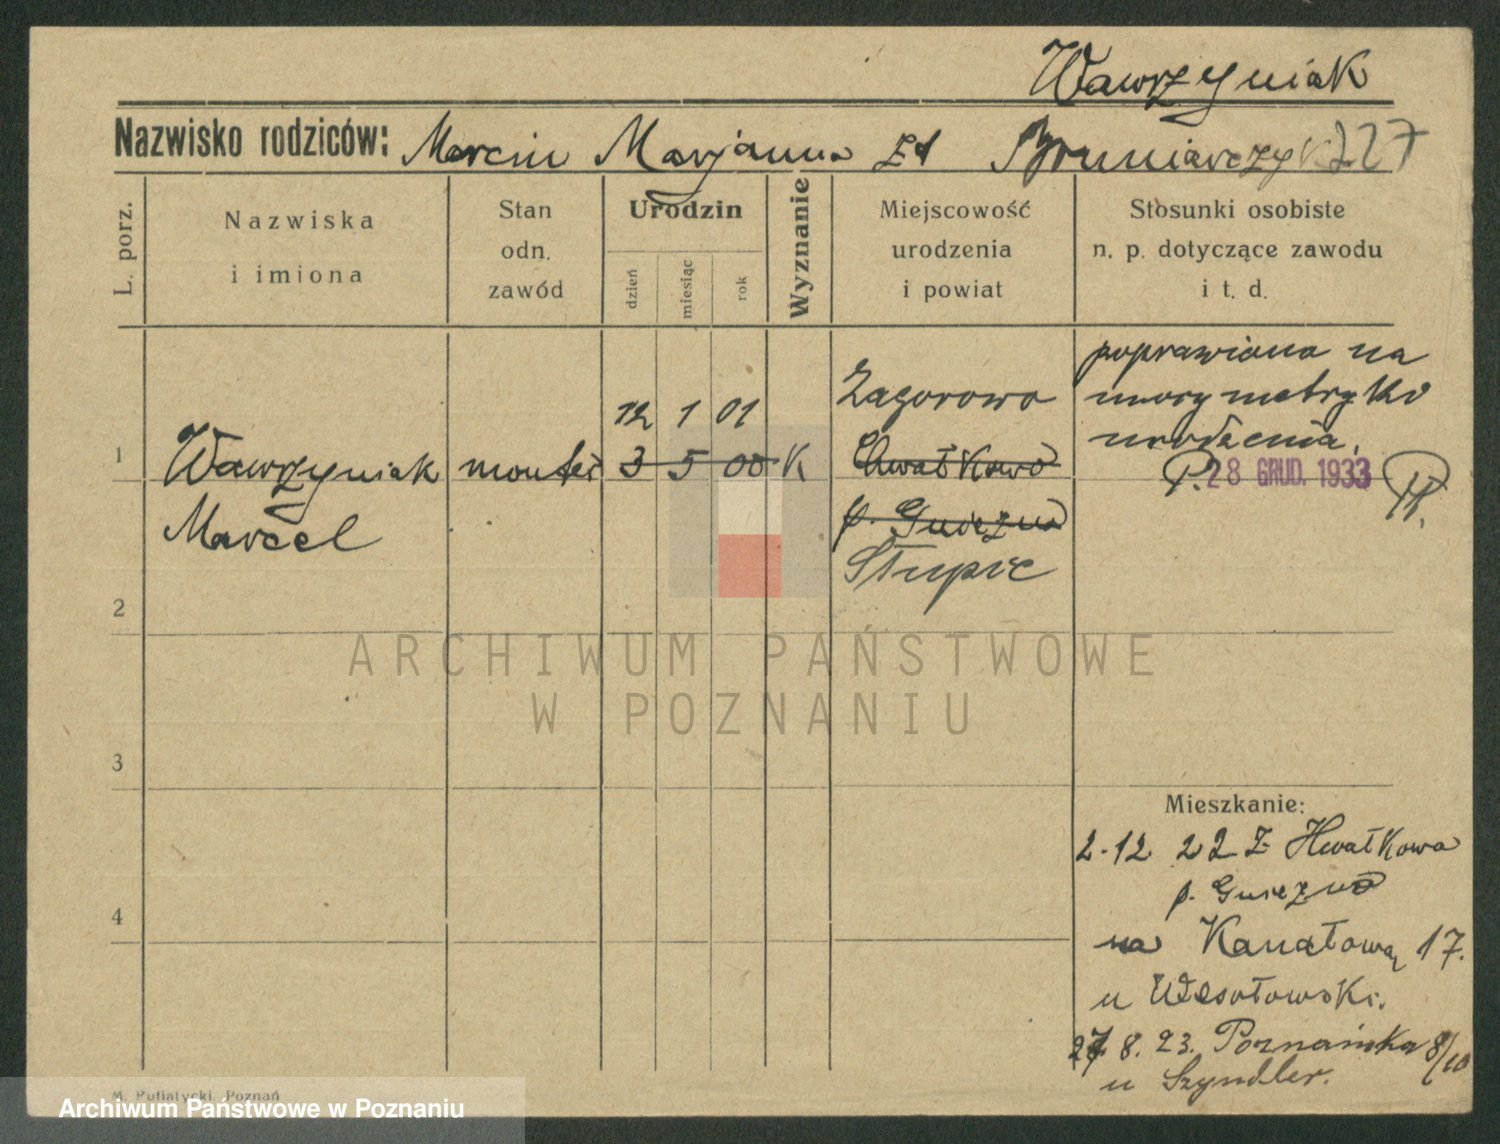 Wawrzyniak
Nazwisko rodziców: Marcin Marjanna zd 227
L. porz.
Nazwiska
i imiona
Stan
odn.
zawód
Urodzin
dzień
miesiąc
rok
Wyznanie
Miejscowość
urodzenia
i powiat
Stosunki osobiste
n. p. dotyczące zawodu
i t. d.
poprawiono na
mocy metryki
urodzenia.
P. 28 GRUD. 1933
12 1 01
Zagorowo
1
Wawrzyniak
Marcel
monter
3 5 00
K
Chwałkowo
p. Gniezno
Słupie
2
ARCHIWUM PAŃSTWOWE
W POZNANIU
3
Mieszkanie:
2.12 22 z Hwałkowa
p. Gniezno
4
na Kanałową 17.
u Wesołowski.
27 8. 23. Poznańska 8/10
u Szyndler.
M. Putiatycki, Poznań
Archiwum Państwowe w Poznaniu